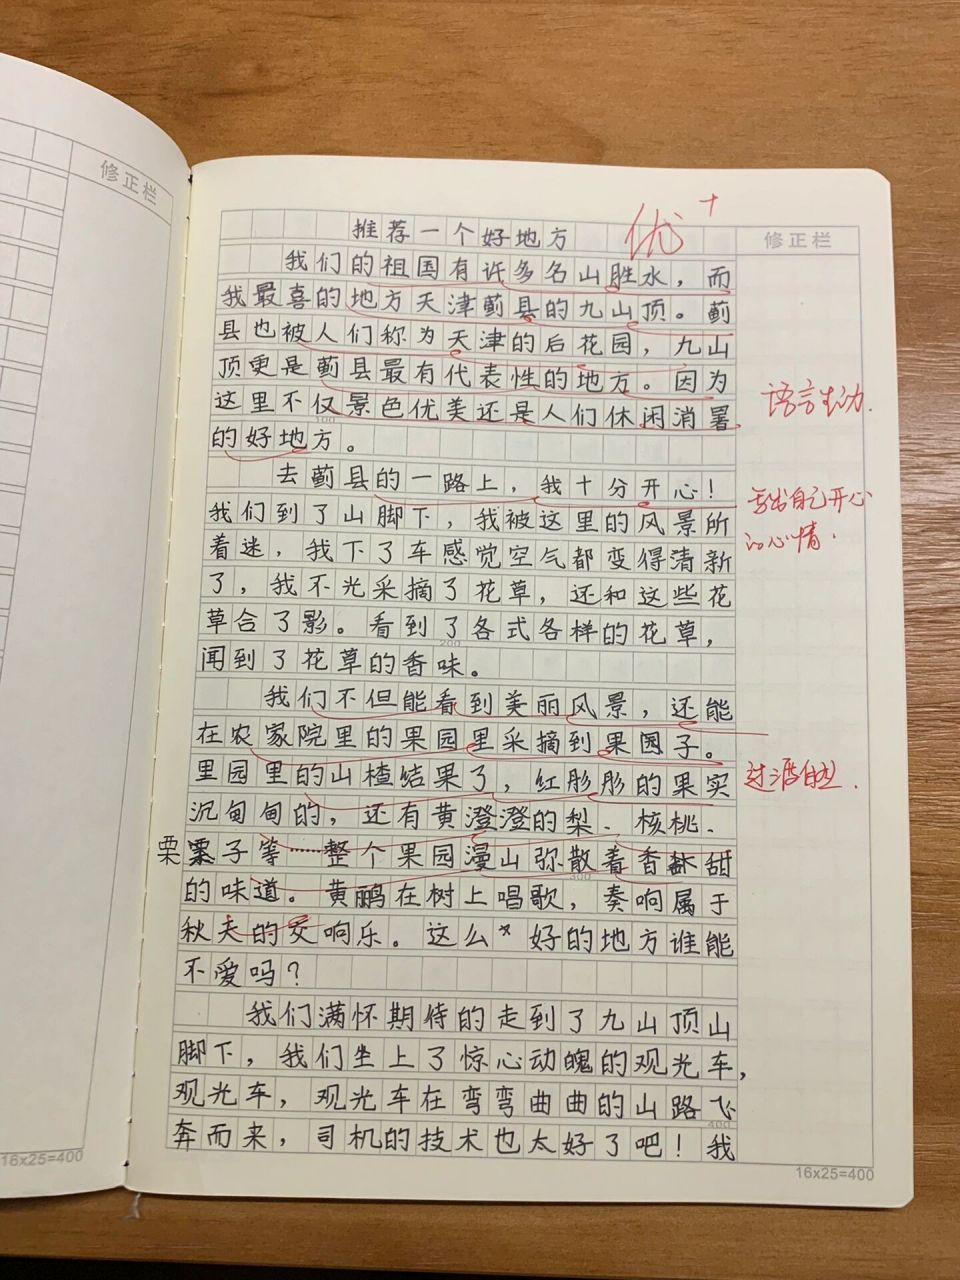 修正栏
推荐一个好地方
优+
修正栏
我们的祖国有许多名山胜水，而
我最喜的地方天津蓟县的九山顶。蓟
县也被人们称为天津的后花园，九山
顶更是蓟县最有代表性的地方。因为
语言生动.
这里不仅景色优美还是人们休闲消暑
的好地方。
去蓟县的一路上，我十分开心！
写出自己开心
的心情.
我们到了山脚下，我被这里的风景所
着迷，我下了车感觉空气都变得清新
了，我不光采摘了花草，还和这些花
草合了影。看到了各式各样的花草，
200
闻到了花草的香味。
我们不但能看到美丽风景，还能
在农家院里的果园里采摘到果园子。
过渡自然.
里园里的山楂结果了，红彤彤的果实
沉甸甸的，还有黄澄澄的梨、核桃、
栗子等……整个果园漫山弥散着香甜
300
的味道。黄鹂在树上唱歌，奏响属于
秋天的交响乐。这么好的地方谁能
不爱吗？
我们满怀期待的走到了九山顶山
脚下，我们坐上了惊心动魄的观光车，
观光车，观光车在弯弯曲曲的山路飞
400
奔而来，司机的技术也太好了吧！我
16x25=400
16x25=400